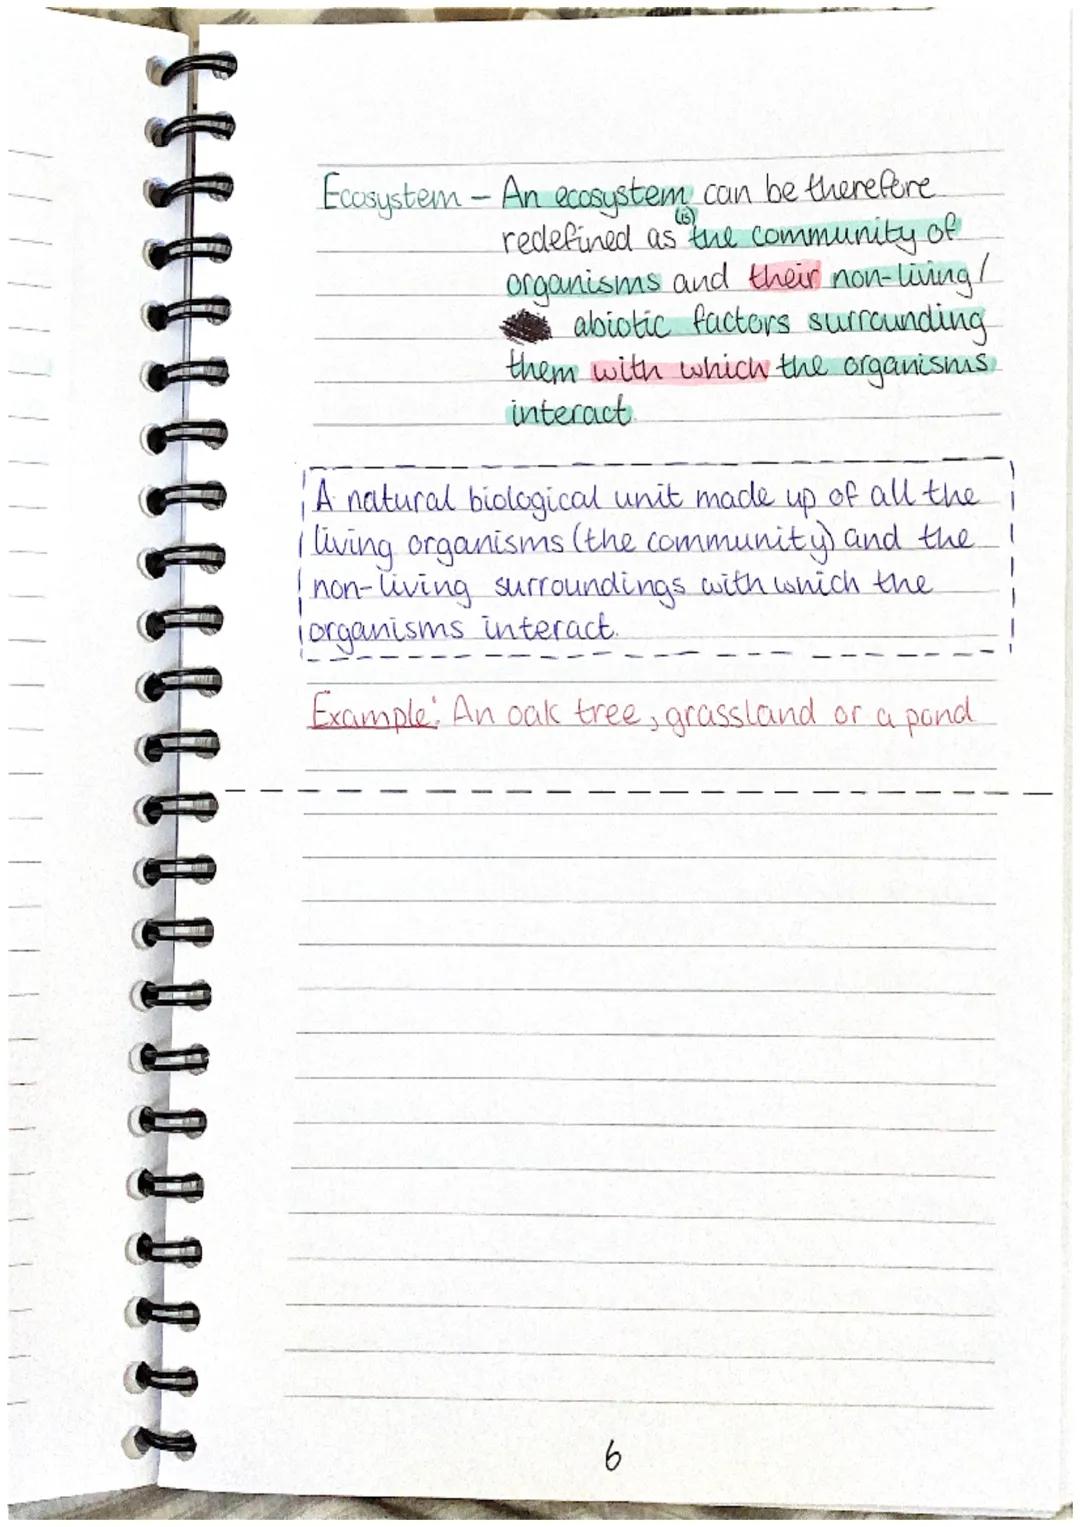 Ecosystem - An ecosystem can be therefore
(is)
redefined as the community of
organisms and their non-living/
abiotic factors surrounding
them with which the organisms
interact.
A natural biological unit made up of all the
living organisms (the community) and the
non-living surroundings with which the
organisms interact.
Example: An oak tree, grassland or a pond
6